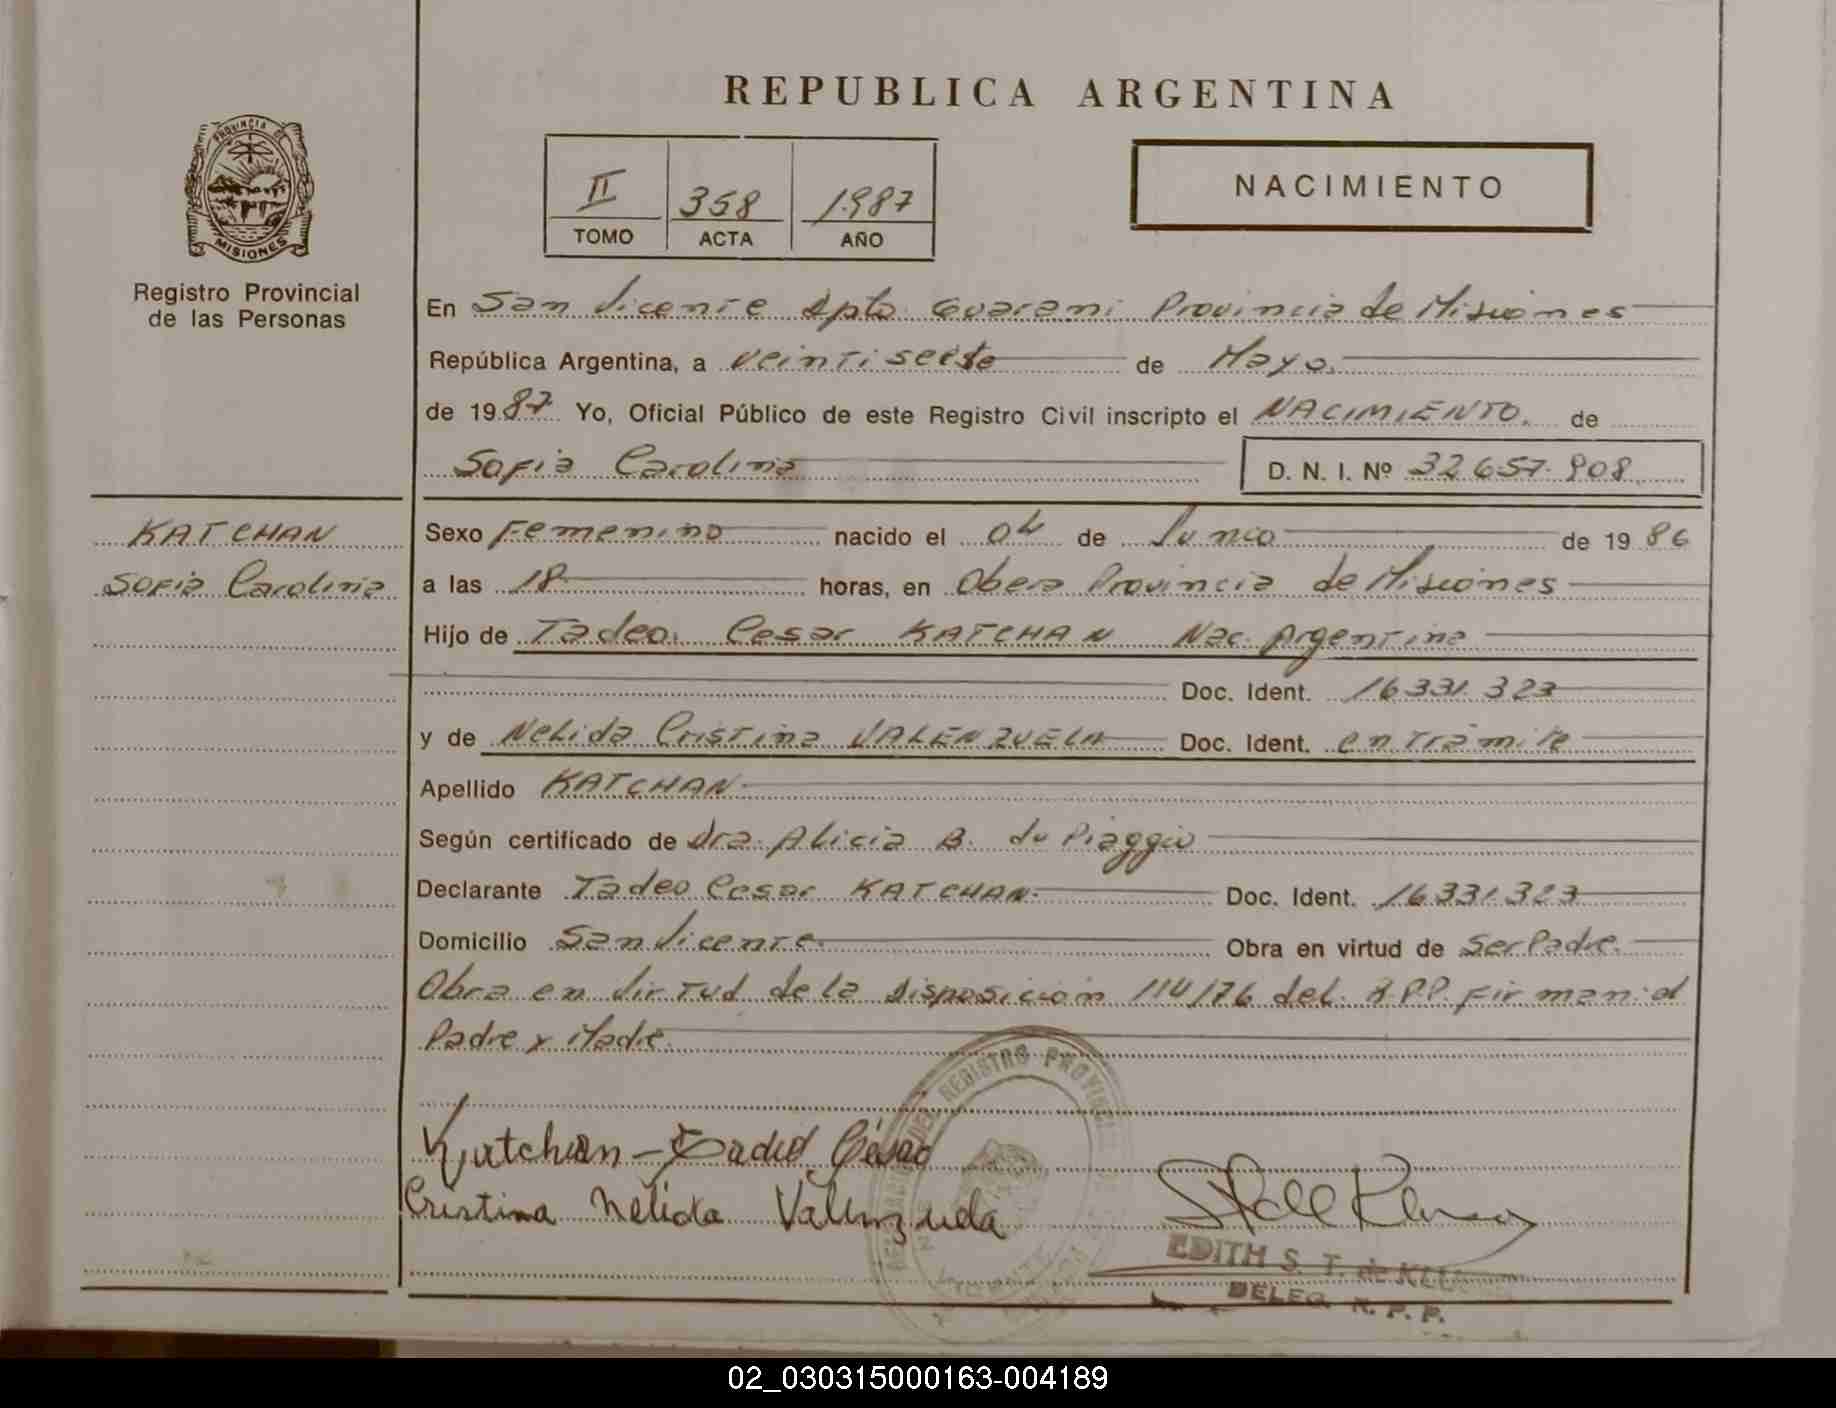 REPUBLICA ARGENTINA
PROVINCIA DE
MISIONES
Registro Provincial
de las Personas
II 358 1987
TOMO ACTA AÑO
NACIMIENTO
En San Vicente Dpto Guarani Provincia de Misiones
República Argentina, a veintisiete de Mayo.
de 1987 Yo, Oficial Público de este Registro Civil inscripto el NACIMIENTO. de
Sofia Carolina D. N. I. Nº 32.657.908
KATCHAN
Sofia Carolina
Sexo Femenino nacido el 04 de Junio de 1986
a las 18 horas, en Obera Provincia de Misiones
Hijo de Tadeo. Cesar KATCHAN Nac. Argentina
Doc. Ident. 16.331.323
y de Nelida Cristina VALENZUELA Doc. Ident. en tramite
Apellido KATCHAN
Según certificado de Dra. Alicia B. du Piaggio
Declarante Tadeo Cesar KATCHAN. Doc. Ident. 16.331.323
Domicilio San Vicente. Obra en virtud de Ser Padre.
Obra en virtud de la Disposición 114/76 del R.P.P. Firman: el
Padre y Madre.
REGISTRO PROVINCIAL
Katchan - Tadeo César
Cristina Nelida Valenzuela
EDITH S. T. de
DELEG. R. P. P.
02_030315000163-004189